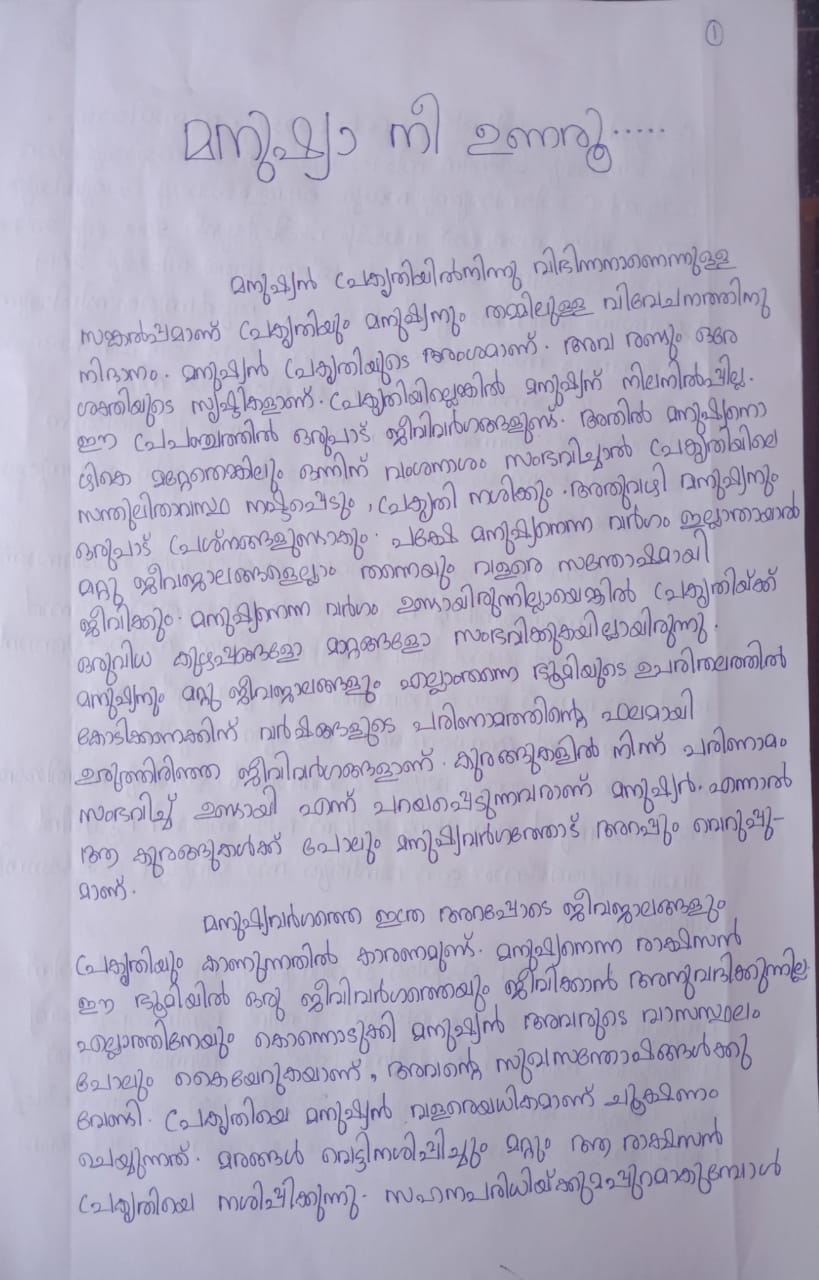 1
മനുഷ്യാ നീ ഉണരൂ.....
മനുഷ്യൻ പ്രകൃതിയിൽനിന്നു വിഭിന്നനാണെന്നുള്ള
സങ്കൽപ്പമാണ് പ്രകൃതിയും മനുഷ്യനും തമ്മിലുള്ള വിവേചനത്തിനു
നിദാനം. മനുഷ്യൻ പ്രകൃതിയുടെ അംശമാണ്. അവ രണ്ടും ഒരേ
ശക്തിയുടെ സൃഷ്ടികളാണ്. പ്രകൃതിയില്ലെങ്കിൽ മനുഷ്യന് നിലനിൽപ്പില്ല.
ഈ പ്രപഞ്ചത്തിൽ ഒരുപാട് ജീവിവർഗങ്ങളുണ്ട്. അതിൽ മനുഷ്യനൊ
ഴികെ മറ്റേതെങ്കിലും ഒന്നിന് വംശനാശം സംഭവിച്ചാൽ പ്രകൃതിയിലെ
സന്തുലിതാവസ്ഥ നഷ്ടപ്പെടും, പ്രകൃതി നശിക്കും. അതുവഴി മനുഷ്യനും
ഒരുപാട് പ്രശ്നങ്ങളുണ്ടാകും. പക്ഷേ മനുഷ്യനെന്ന വർഗം ഇല്ലാതായാൽ
മറ്റു ജീവജാലങ്ങളെല്ലാം തന്നെയും വളരെ സന്തോഷമായി
ജീവിക്കും. മനുഷ്യനെന്ന വർഗം ഉണ്ടായിരുന്നില്ലായെങ്കിൽ പ്രകൃതിയ്ക്ക്
ഒരുവിധ കുഴപ്പങ്ങളോ മാറ്റങ്ങളോ സംഭവിക്കുകയില്ലായിരുന്നു.
മനുഷ്യനും മറ്റു ജീവജാലങ്ങളും എല്ലാംതന്നെ ഭൂമിയുടെ ഉപരിതലത്തിൽ
കോടിക്കണക്കിന് വർഷങ്ങളുടെ പരിണാമത്തിന്റെ ഫലമായി
ഉരുത്തിരിഞ്ഞ ജീവിവർഗങ്ങളാണ്. കുരങ്ങുകളിൽ നിന്ന് പരിണാമം
സംഭവിച്ച് ഉണ്ടായി എന്ന് പറയപ്പെടുന്നവരാണ് മനുഷ്യർ. എന്നാൽ
ആ കുരങ്ങുകൾക്ക് പോലും മനുഷ്യവർഗത്തോട് അറപ്പും വെറുപ്പു-
മാണ്.
മനുഷ്യവർഗത്തെ ഇത്ര അറപ്പോടെ ജീവജാലങ്ങളും
പ്രകൃതിയും കാണുന്നതിൽ കാരണമുണ്ട്. മനുഷ്യനെന്ന രാക്ഷസൻ
ഈ ഭൂമിയിൽ ഒരു ജീവിവർഗത്തെയും ജീവിക്കാൻ അനുവദിക്കുന്നില്ല
എല്ലാത്തിനേയും കൊന്നൊടുക്കി മനുഷ്യൻ അവരുടെ വാസസ്ഥലം
പോലും കൈയേറുകയാണ്, അവന്റെ സുഖസന്തോഷങ്ങൾക്കു
വേണ്ടി. പ്രകൃതിയെ മനുഷ്യൻ വളരെയധികമാണ് ചൂക്ഷണം
ചെയ്യുന്നത്. മരങ്ങൾ വെട്ടിനശിപ്പിച്ചും മറ്റും ആ രാക്ഷസൻ
പ്രകൃതിയെ നശിപ്പിക്കുന്നു. സഹനപരിധിയ്ക്കുമപ്പുറമാകുമ്പോൾ